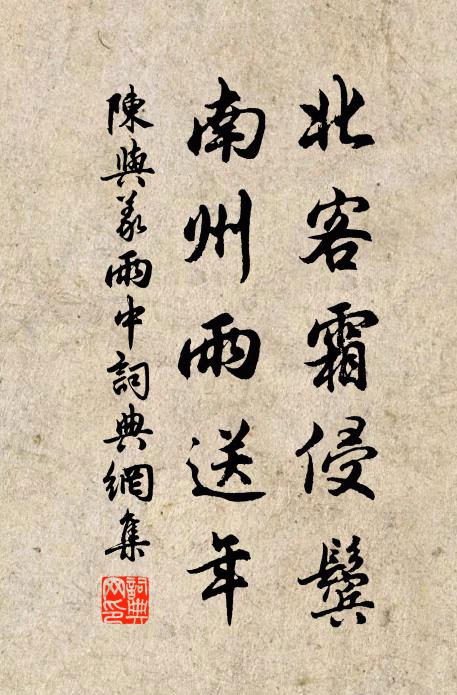 北客霜侵鬢
南州雨送年
陳與義雨中詞典網集
詞典網印